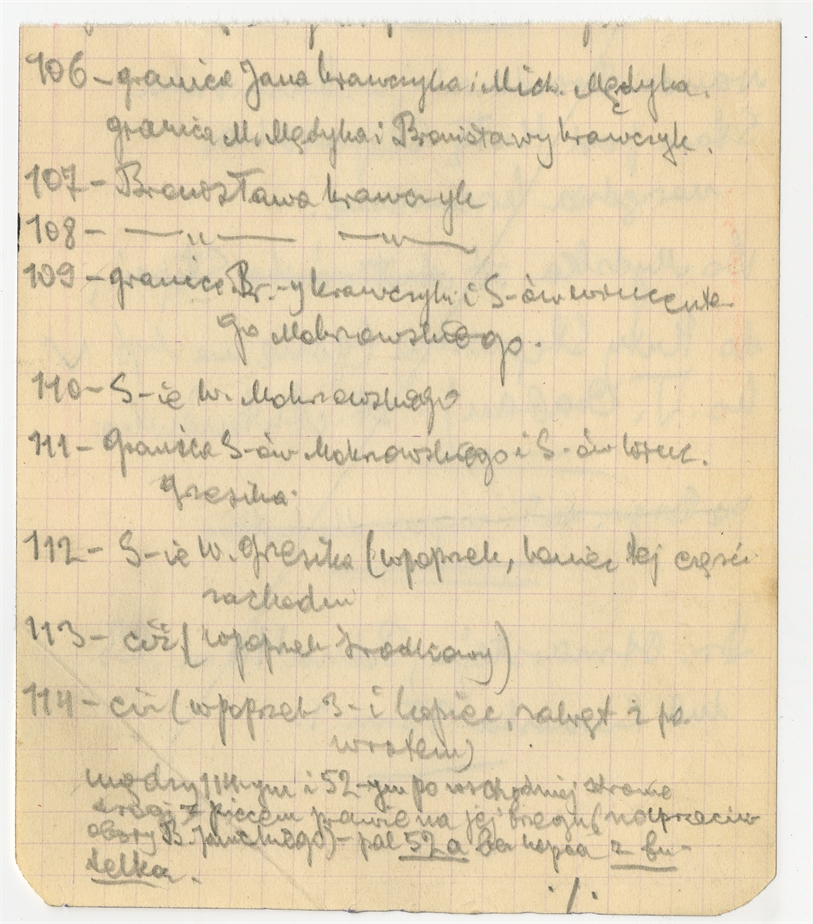 106 - granica Jana Krawczyka i Mich. Mędyka.
granica M. Mędyka i Bronisławy Krawczyk.
107 - Bronisława Krawczyk
108 - —„— —„—
109 - granica Br.-y Krawczyk i S-ów Wincente-
go Mokrzowskiego.
110 - S-ie W. Mokrzowskiego
111 - granica S-ów Mokrzowskiego i S-ów Winc.
Grzesika.
112 - S-ie W. Grzesika (wpoprzek, koniec tej części
zachodni
113 - ciż (wpoprzek środkowy)
114 - ciż (wpoprzek 3-i kopiec, zakręt z po
wrotem)
między 114-ym i 52-ym po wschodniej stronie
drogi z piecem prawie na jej brzegu (naprzeciw
obory B. Janickiego) - pal 52a bez kopca z bu-
telką.
./.